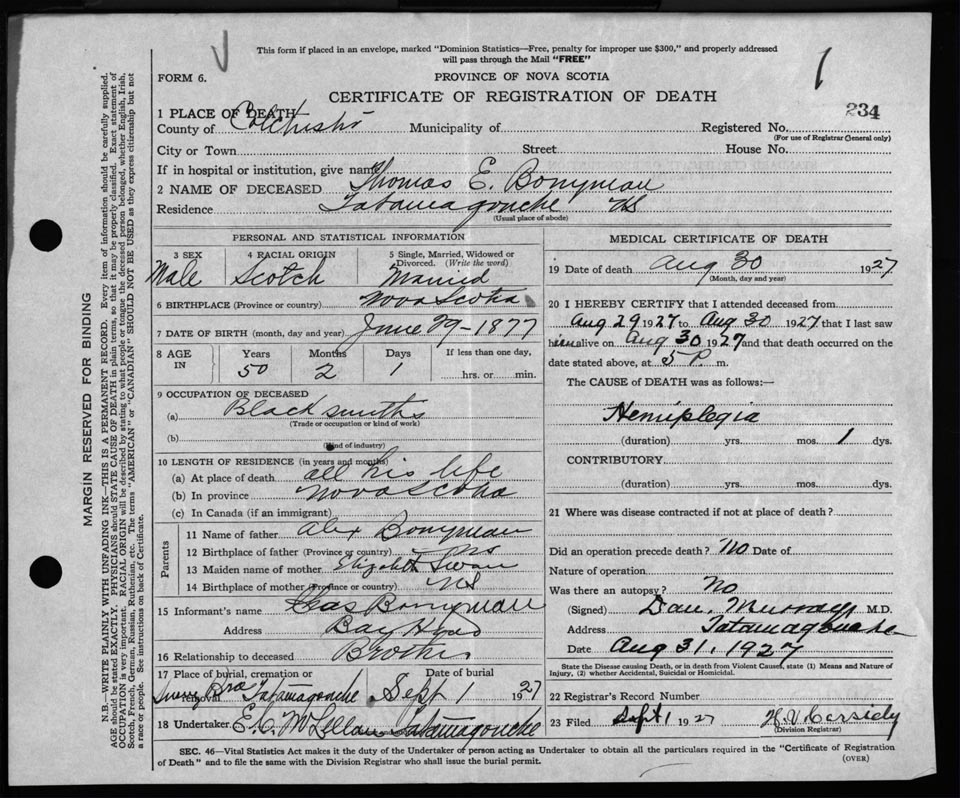 This form if placed in an envelope, marked "Dominion Statistics—Free, penalty for improper use $300," and properly addressed
will pass through the Mail "FREE"
FORM 6.
PROVINCE OF NOVA SCOTIA
CERTIFICATE OF REGISTRATION OF DEATH
234
1 PLACE OF DEATH
County of Colchester Municipality of Registered No.
(For use of Registrar General only)
City or Town Street House No.
If in hospital or institution, give name
2 NAME OF DECEASED Thomas E. Bonyman
Residence Tatamagouche NS
(Usual place of abode)
PERSONAL AND STATISTICAL INFORMATION
3 SEX 4 RACIAL ORIGIN 5 Single, Married, Widowed or Divorced. (Write the word)
Male Scotch Married
6 BIRTHPLACE (Province or country) Nova Scotia
7 DATE OF BIRTH (month, day and year) June 29-1877
8 AGE IN Years Months Days If less than one day,
50 2 1 hrs. or min.
9 OCCUPATION OF DECEASED
(a) Blacksmith
(Trade or occupation or kind of work)
(b)
(Kind of industry)
10 LENGTH OF RESIDENCE (in years and months)
(a) At place of death all his life
(b) In province Nova Scotia
(c) In Canada (if an immigrant)
Parents
11 Name of father Alex Bonyman
12 Birthplace of father (Province or country) NS
13 Maiden name of mother Elizabeth Swan
14 Birthplace of mother (Province or country) NS
15 Informant's name Chas Bonyman
Address Bay Head
16 Relationship to deceased Brother
17 Place of burial, cremation or removal Date of burial
Tatamagouche Sept 1 1927
18 Undertaker E. C. McLellan Tatamagouche
MEDICAL CERTIFICATE OF DEATH
19 Date of death Aug 30 1927
(Month, day and year)
20 I HEREBY CERTIFY that I attended deceased from
Aug 29 1927 to Aug 30 1927 that I last saw
him alive on Aug 30 1927 and that death occurred on the
date stated above, at 5 P. m.
The CAUSE of DEATH was as follows:—
Hemiplegia
(duration) yrs. mos. 1 dys.
CONTRIBUTORY
(duration) yrs. mos. dys.
21 Where was disease contracted if not at place of death?
Did an operation precede death? No Date of
Nature of operation
Was there an autopsy? No
(Signed) Dan. Murray M.D.
Address Tatamagouche
Date Aug 31, 1927
State the Disease causing Death, or in death from Violent Causes, state (1) Means and Nature of
Injury, (2) whether Accidental, Suicidal or Homicidal.
22 Registrar's Record Number
23 Filed Sept 1 1927 H. V. Cassidy
(Division Registrar)
SEC. 46—Vital Statistics Act makes it the duty of the Undertaker of person acting as Undertaker to obtain all the particulars required in the "Certificate of Registration
of Death" and to file the same with the Division Registrar who shall issue the burial permit.
(OVER)
MARGIN RESERVED FOR BINDING
N.B.—WRITE PLAINLY WITH UNFADING INK—THIS IS A PERMANENT RECORD. Every item of information should be carefully supplied.
AGE should be stated EXACTLY. PHYSICIANS should STATE CAUSE OF DEATH in plain terms, so that it may be properly classified. Exact statement of
OCCUPATION is very important. RACIAL ORIGIN will be described by stating to what people or tongue the deceased person belonged, whether English, Irish,
Scotch, French, German, Russian, Ruthenian, etc. The terms "AMERICAN" or "CANADIAN" SHOULD NOT BE USED as they express citizenship but not
a race or people. See instructions on back of Certificate.